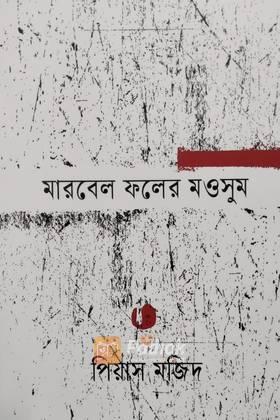 মারবেল ফলের মওসুম
পিয়াস মজিদ